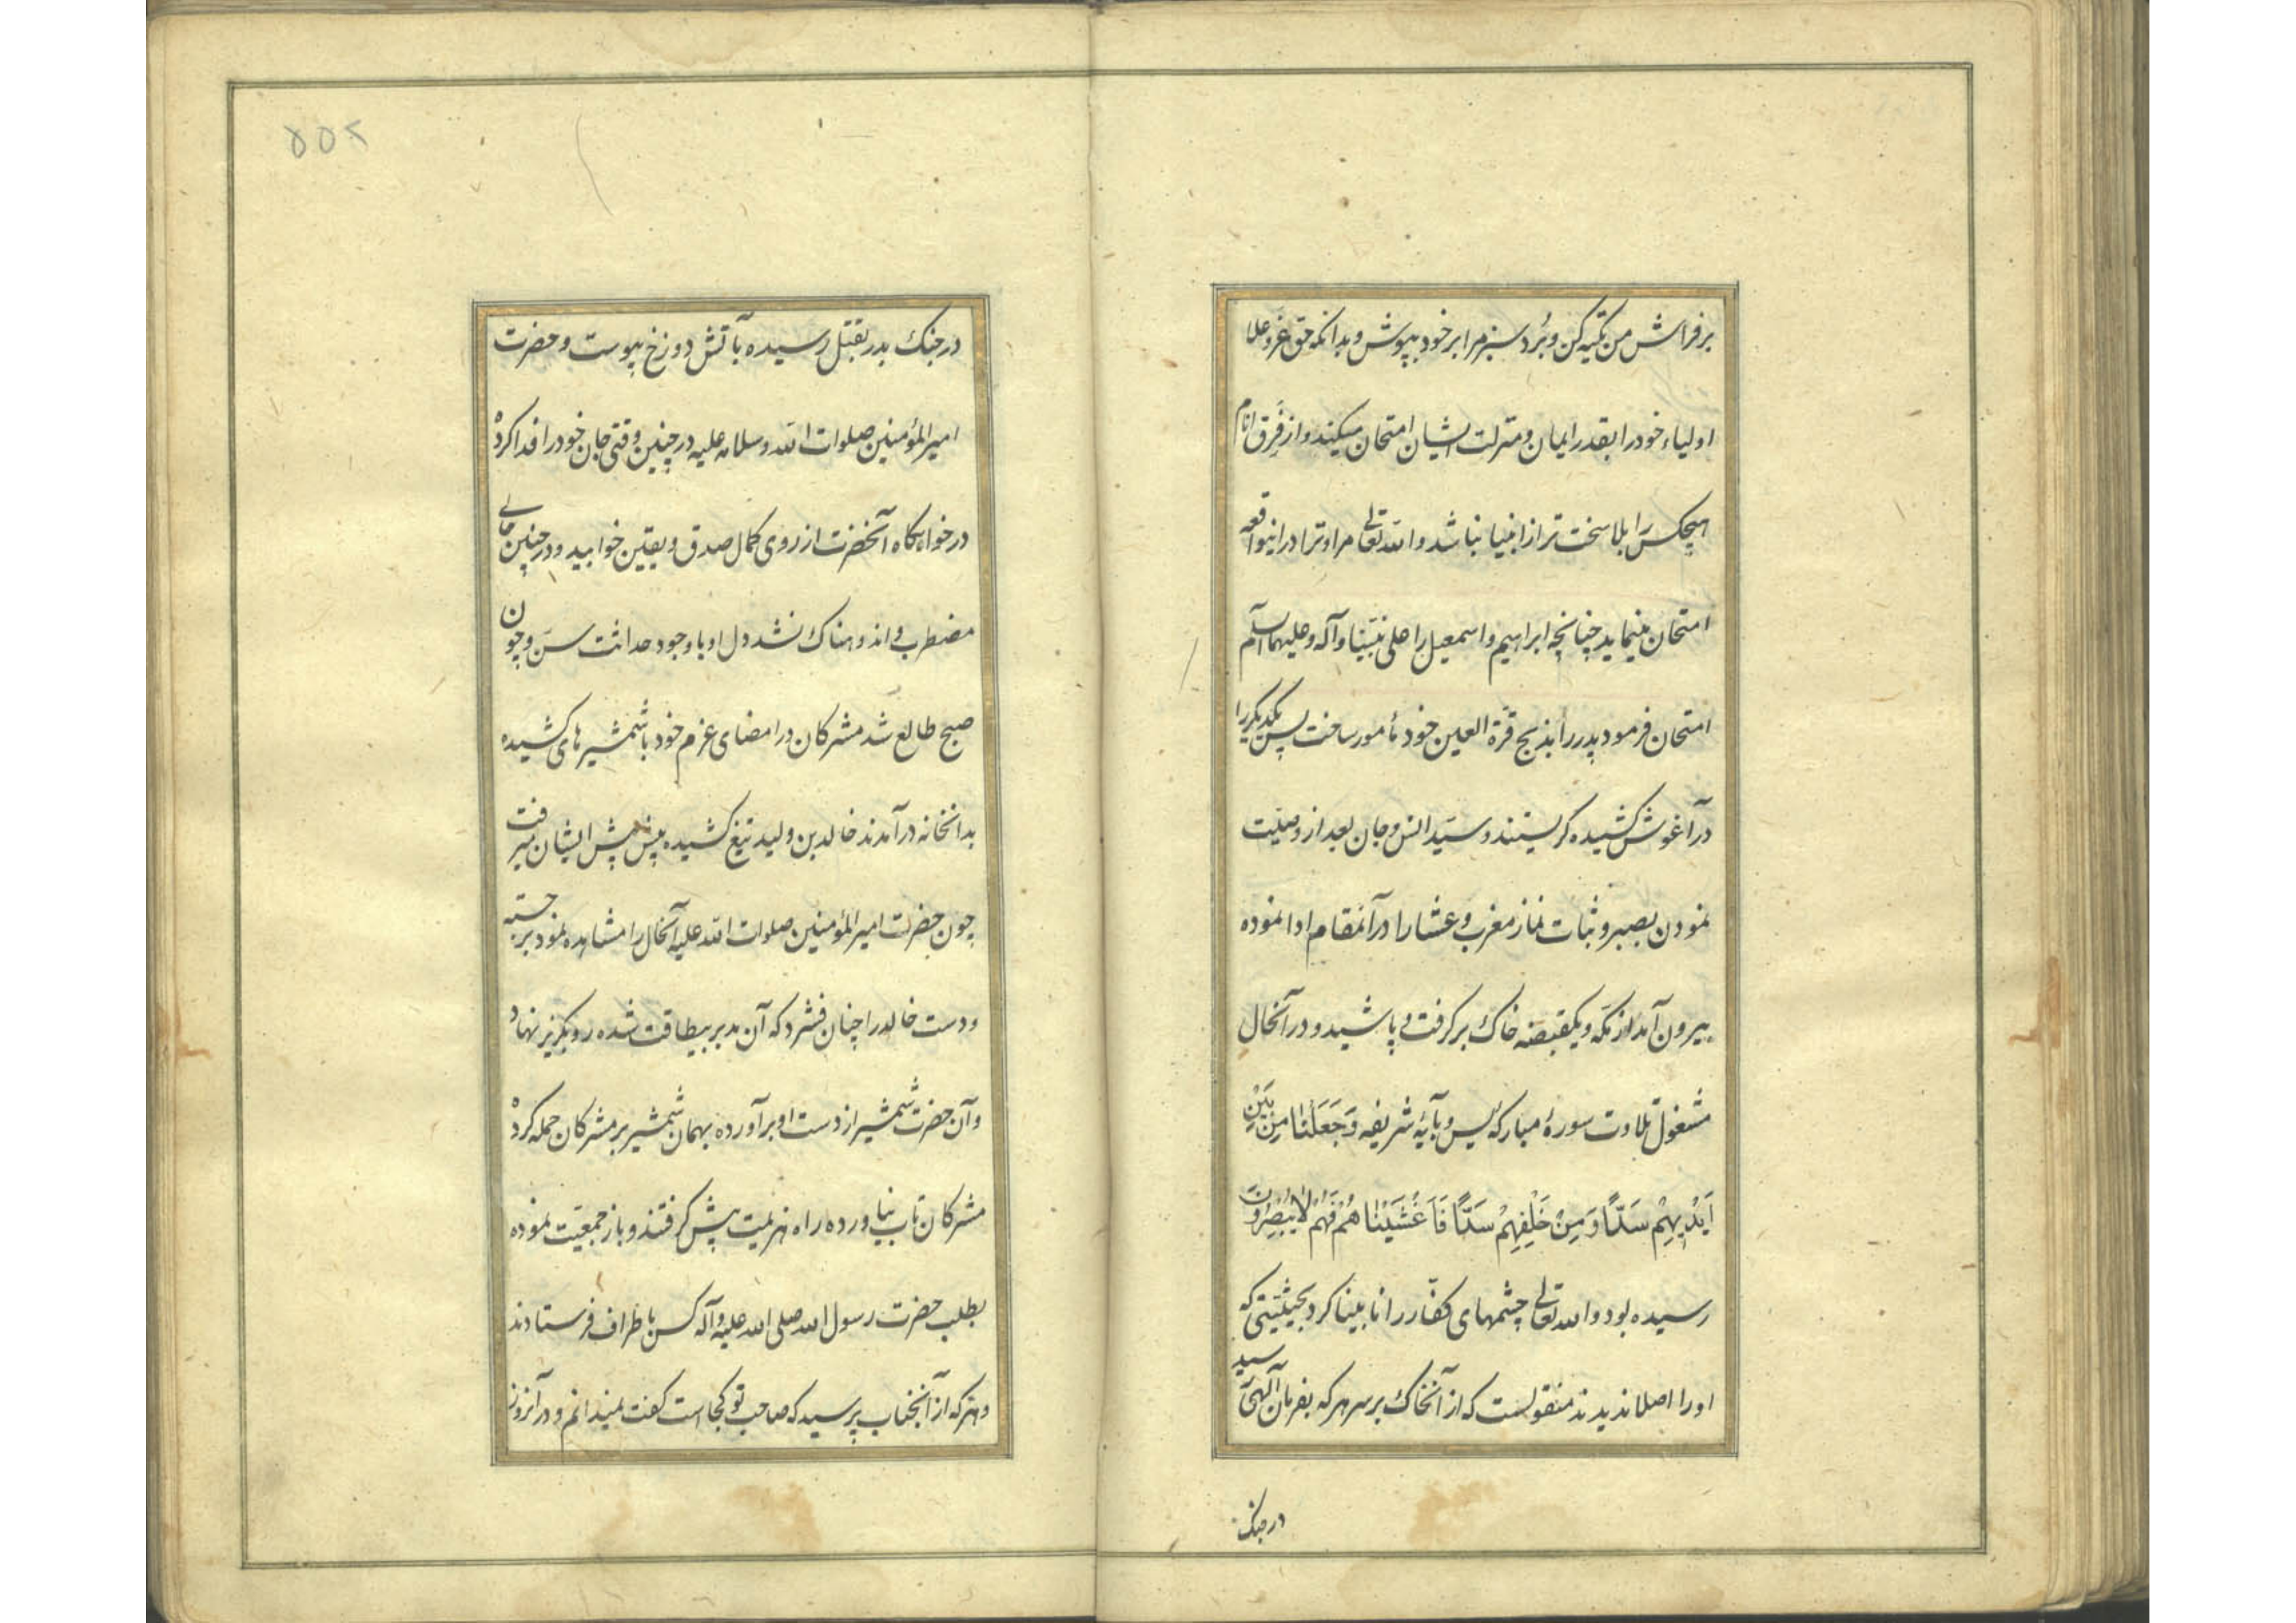 بر فراش من تکیه کن و بُرد سبز مرا بر خود بپوش و بدانکه حق عزّ و علا
اولیاء خود را بقدر ایمان و منزلت ایشان امتحان میکند و از فِرَق انام
هیچکس را بلا سخت تر از انبیا نباشد و الله تعالی مرا و ترا در اینواقعه
امتحان مینماید چنانچه ابراهیم و اسمعیل را علی نبیّنا و آله و علیهما السلام
امتحان فرمود پدر را بذبح قرّة العین خود مأمور ساخت پس یکدیگر را
در آغوش کشیده گریستند و سیّد انس و جان بعد از وصیّت
نمودن بصبر و ثبات نماز مغرب و عشا را در آنمقام ادا نموده
بیرون آمد از مکّه و یکقبضه خاک برگرفت و پاشید و در آنحال
مشغول تلاوت سورهٔ مبارکهٔ یس و بآیهٔ شریفه وَجَعَلْنَا مِنْ بَیْنِ
اَیْدِیهِمْ سَدًّا وَ مِنْ خَلْفِهِمْ سَدًّا فَاَغْشَیْنَاهُمْ فَهُمْ لَا یُبْصِرُونَ
رسیده بود و الله تعالی چشمهای کفّار را نابینا کرد بحیثیتی که
او را اصلا ندیدند منقولست که از آنخاک بر سر هر که بفرمان آلهی رسید
در جنک
۵۵۲
در جنک بدر بقتل رسیده بآتش دوزخ پیوست و حضرت
امیر المؤمنین صلوات الله و سلامه علیه در چنین وقتی جان خود را فدا کرده
در خوابگاه آنحضرت از روی کمال صدق و یقین خوابید و در چنین حالی
مضطرب و اندوهناک نشد دل او با وجود حداثت سنّ و چون
صبح طالع شد مشرکان در امضای عزم خود با شمشیرهای کشیده
بدانخانه درآمدند خالد بن ولید تیغ کشیده پیش پیش ایشان میرفت
چون حضرت امیر المؤمنین صلوات الله علیه آنحال را مشاهده نمود برجسته
و دست خالد را چنان فشرد که آن مدبر بیطاقت شده رو بگریز نهاد
و آن حضرت شمشیر از دست او برآورده بهمان شمشیر بر مشرکان حمله کرده
مشرکان تاب نیاورده راه هزیمت پیش گرفتند و باز جمعیّت نموده
بطلب حضرت رسول الله صلی الله علیه و آله کس باطراف فرستادند
و هر که از آنجناب پرسید که صاحب تو کجاست گفت نمیدانم و در آنروز